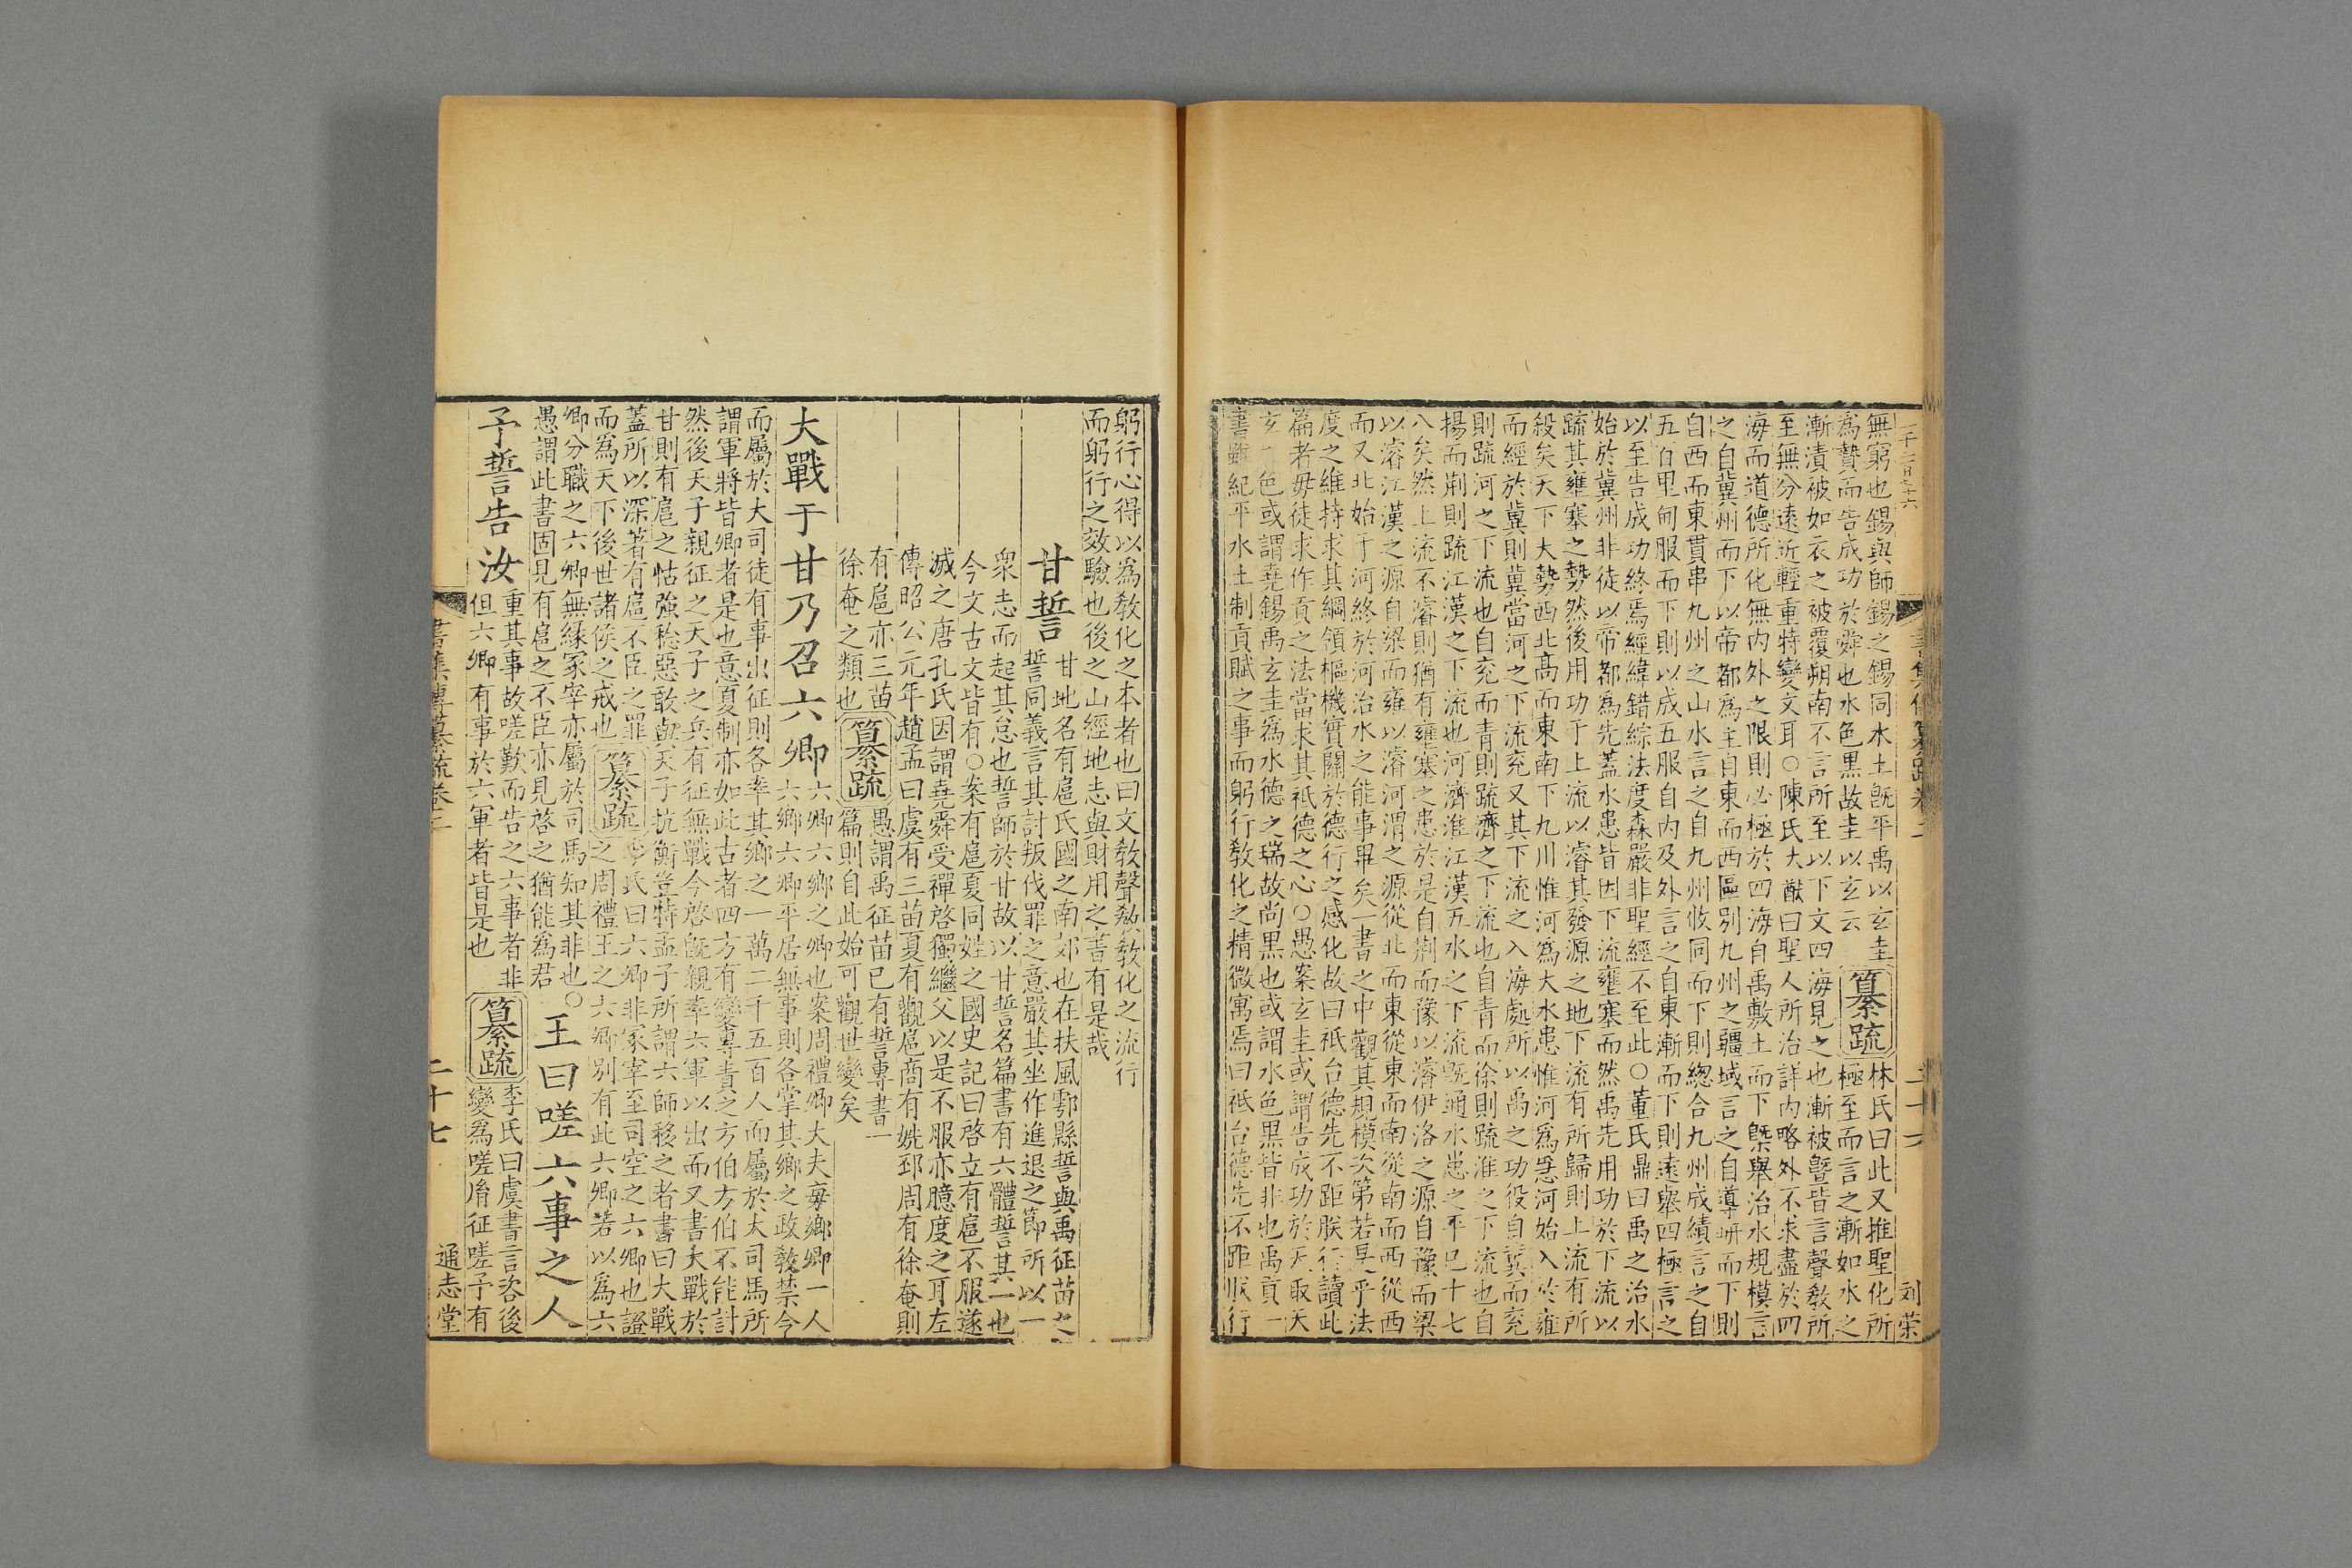 無窮也錫與師錫之錫同水土旣平禹以玄圭
爲贄而告成功於舜也水色黑故圭以玄云
纂疏
林氏曰此又推聖化所
極至而言之漸如水之
漸漬被如衣之被覆朔南不言所至以下文四海見之也漸被曁皆言聲敎所
至無分遠近輕重特變文耳○陳氏大猷曰聖人所治詳內略外不求盡於四
海而道德所化無內外之限則必極於四海自禹敷土而下槩舉治水規模言
之自冀州而下以帝都爲主自東而西區別九州之疆域言之自導岍而下則
自西而東貫串九州之山水言之自九州攸同而下則緫合九州成績言之自
五百里甸服而下則以成五服自內及外言之自東漸而下則遠舉四極言之
以至告成功終焉經緯錯綜法度森嚴非聖經不至此○董氏鼎曰禹之治水
始於冀州非徒以帝都爲先蓋水患皆因下流壅塞而然禹先用功於下流以
疏其壅塞之勢然後用功于上流以濬其發源之地下流有所歸則上流有所
殺矣天下大勢西北高而東南下九川惟河爲大水患惟河爲急河始入於雍
而經於冀則冀當河之下流兗又其下流之入海處所以禹之功役自冀而兗
則疏河之下流也自兗而靑則疏濟之下流也自靑而徐則疏淮之下流也自
揚而荆則疏江漢之下流也河濟淮江漢五水之下流旣通水患之平已十七
八矣然上流不濬則猶有壅塞之患於是自荆而豫以濬伊洛之源自豫而梁
以濬江漢之源自梁而雍以濬河渭之源從北而東從東而南從南而西從西
而又北始于河終於河治水之能事畢矣一書之中觀其規模次第若是乎法
度之維持求其綱領樞機實關於德行之感化故曰祗台德先不距朕行讀此
篇者毋徒求作貢之法當求其祗德之心○愚案玄圭或謂告成功於天取天
玄之色或謂堯錫禹玄圭爲水德之瑞故尚黑也或謂水色黑皆非也禹貢一
書雖紀平水土制貢賦之事而躬行敎化之精微寓焉曰祗台德先不距朕行
刘荣
躬行心得以爲敎化之本者也曰文敎聲敎敎化之流行
而躬行之效驗也後之山經地志與財用之書有是哉
甘誓
甘地名有扈氏國之南郊也在扶風鄠縣誓與禹征苗之
誓同義言其討叛伐罪之意嚴其坐作進退之節所以一
衆志而起其怠也誓師於甘故以甘誓名篇書有六體誓其一也
今文古文皆有○案有扈夏同姓之國史記曰啓立有扈不服遂
滅之唐孔氏因謂堯舜受禪啓獨繼父以是不服亦臆度之耳左
傳昭公元年趙孟曰虞有三苗夏有觀扈商有姺邳周有徐奄則
有扈亦三苗
徐奄之類也
纂疏
愚謂禹征苗已有誓專書一
篇則自此始可觀世變矣
大戰于甘乃召六卿
六卿六鄉之卿也案周禮鄉大夫每鄉卿一人
六鄉六卿平居無事則各掌其鄉之政敎禁令
而屬於大司徒有事出征則各率其鄉之一萬二千五百人而屬於大司馬所
謂軍將皆卿者是也意夏制亦如此古者四方有變專責之方伯方伯不能討
然後天子親征之天子之兵有征無戰今啓旣親率六軍以出而又書大戰於
甘則有扈之怙強稔惡敢與天子抗衡豈特孟子所謂六師移之者書曰大戰
蓋所以深著有扈不臣之罪
而爲天下後世諸侯之戒也
纂疏
氏曰六卿非冢宰至司空之六卿也證
之周禮王之六卿別有此六卿若以爲六
卿分職之六卿無緣冢宰亦屬於司馬知其非也○
愚謂此書固見有扈之不臣亦見啓之猶能爲君
王曰嗟六事之人
予誓告汝
重其事故嗟歎而告之六事者非
但六卿有事於六軍者皆是也
纂疏
李氏曰虞書言咨後
變爲嗟胤征嗟予有
書集傳纂疏卷二
二十七
通志堂